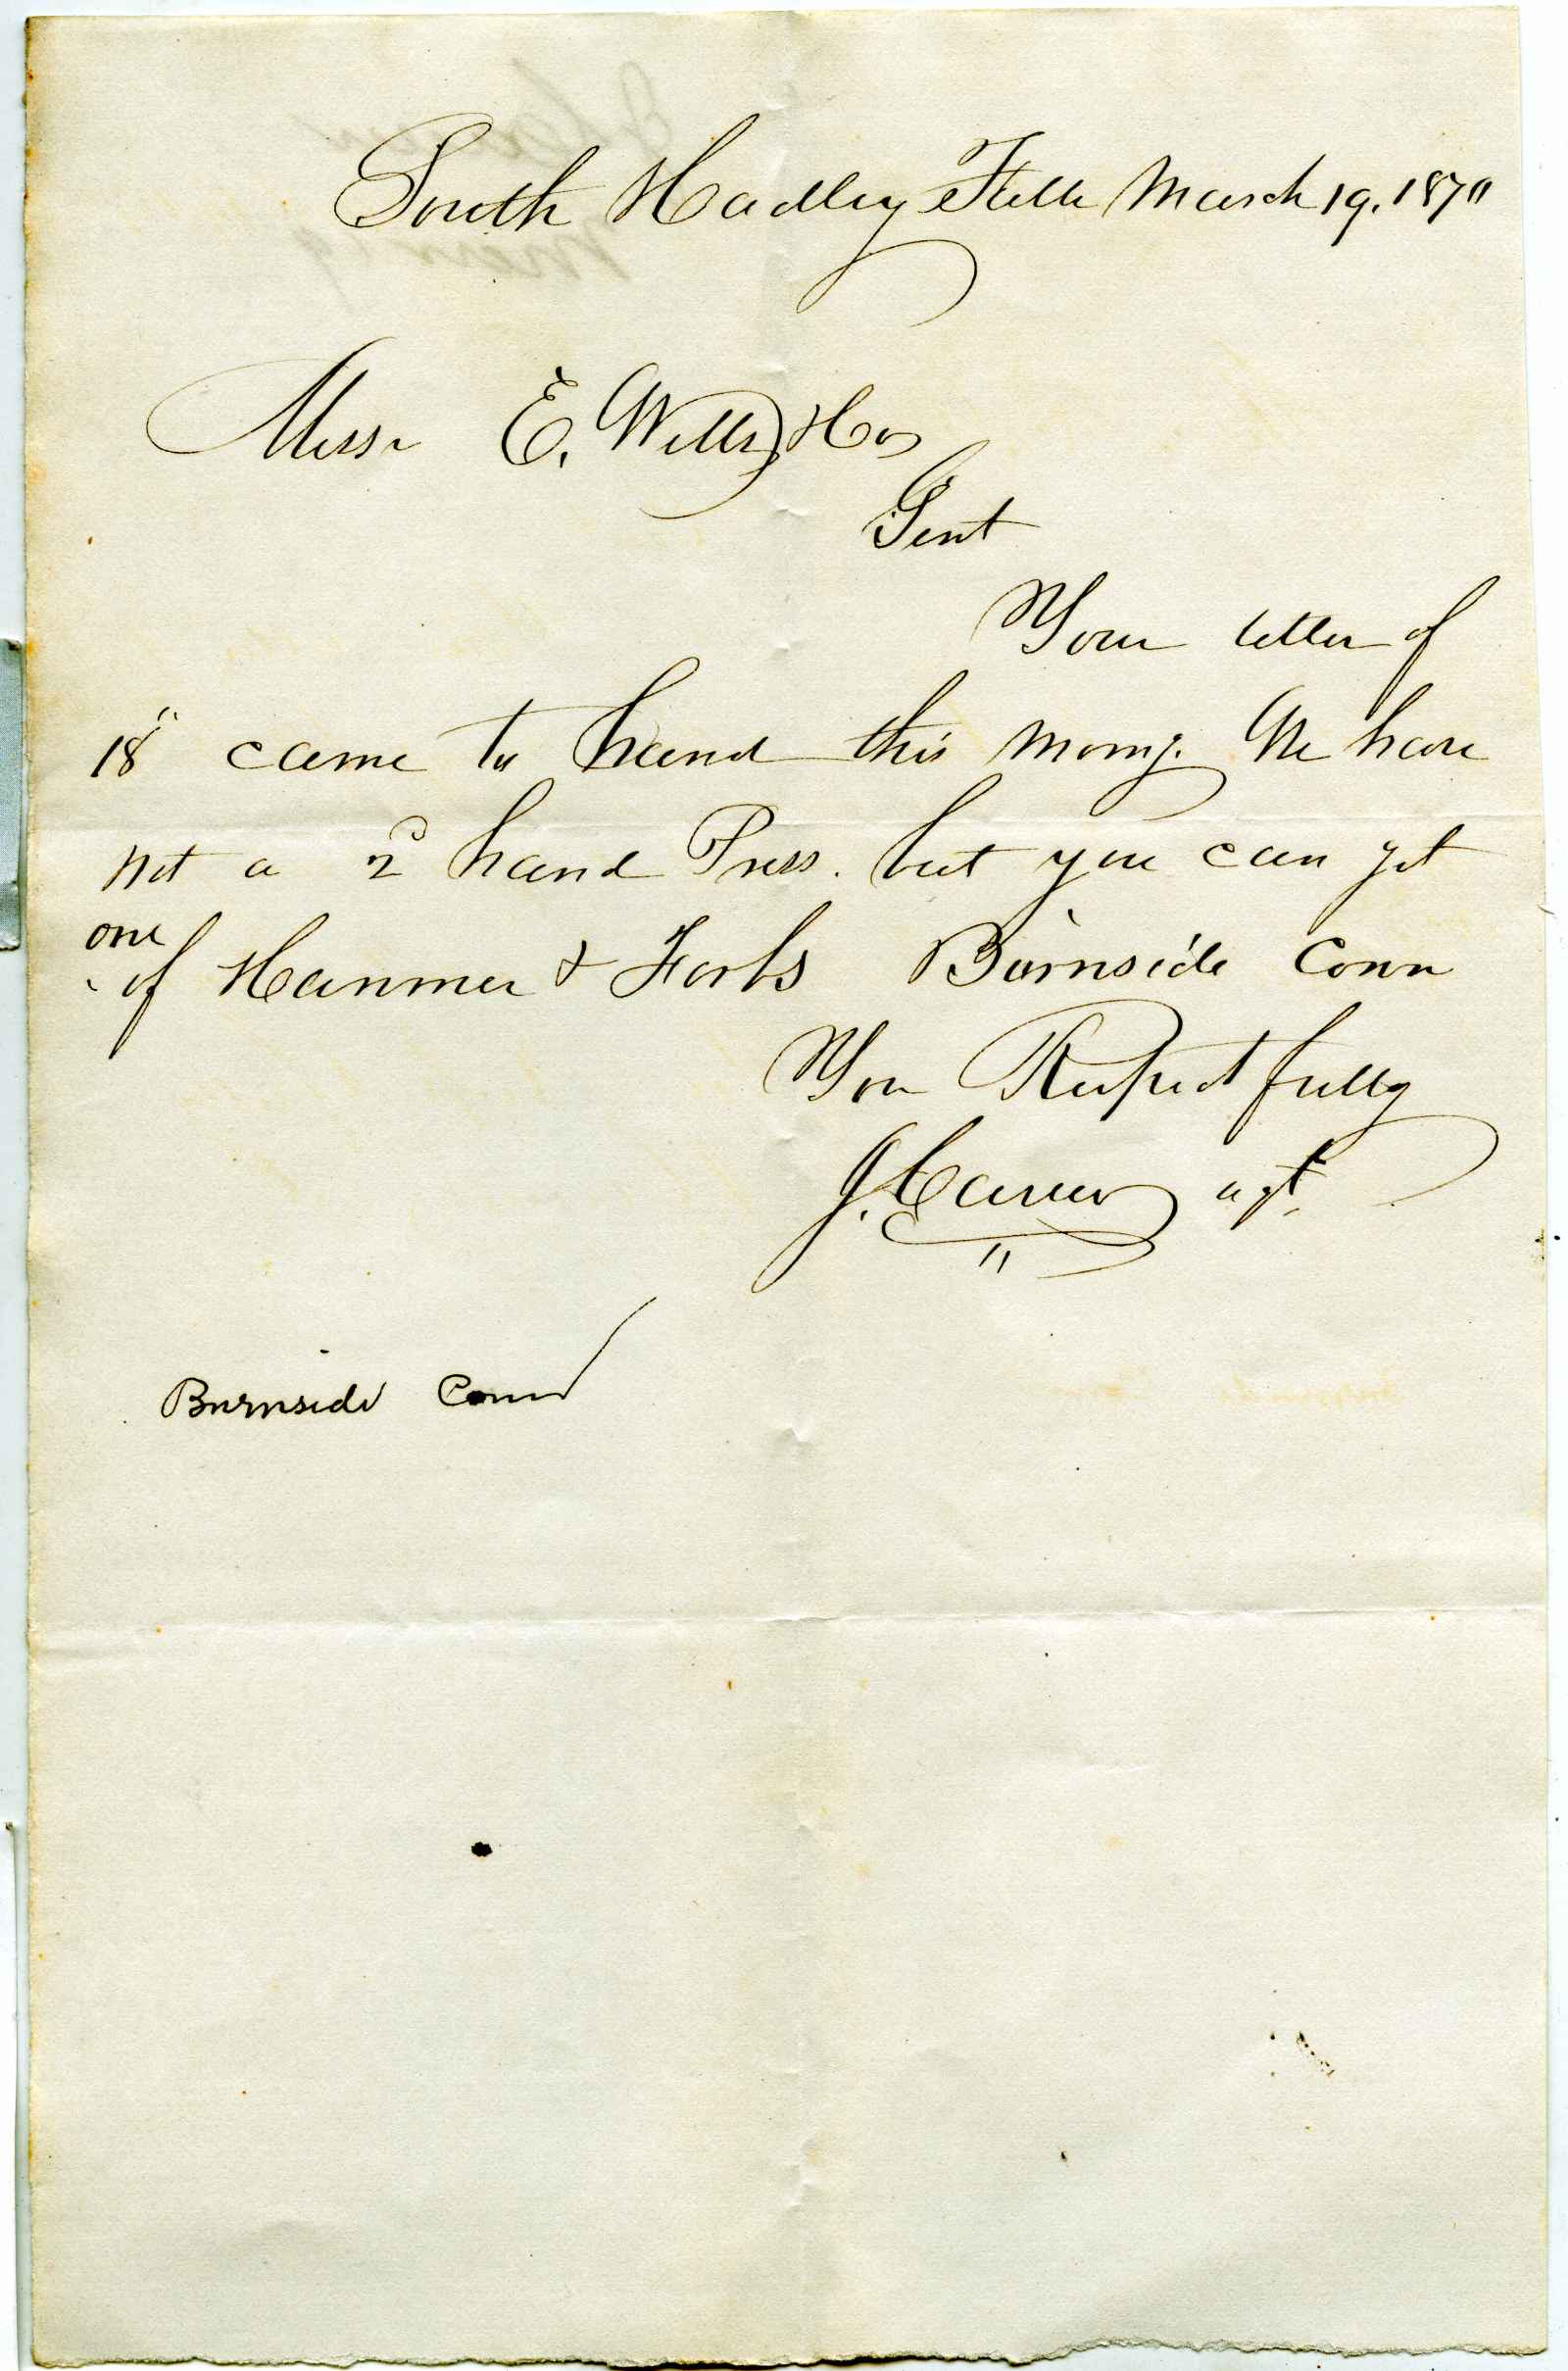 South Hadley Falls March 19. 1870
Messr E. Wells
Gent
Your letter of
18" came to hand this morng. We have
not a 2d hand Press. but you can get
one
of Hanmer & Forbs Burnside Conn
You Respectfully
J. Carew agt.
Burnside Conn